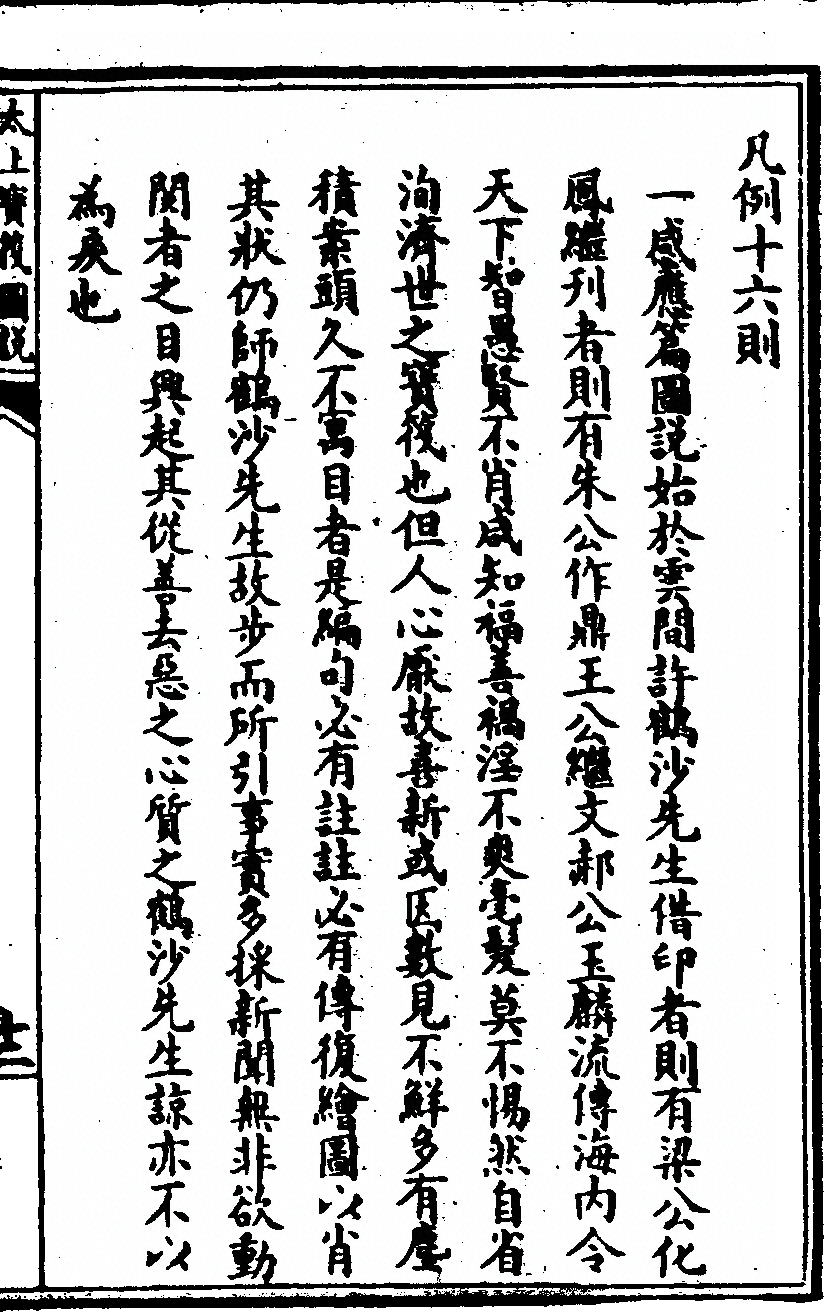 凡例十六則
一感應篇圖説始於雲間許鶴沙先生偕印者則有梁公化
鳳繼刊者則有朱公作鼎王公繼文郝公玉麟流傳海内令
天下智愚賢不肖咸知福善禍淫不爽毫髮莫不惕然自省
洵濟世之寶筏也但人心厭故喜新或因數見不鮮多有塵
積案頭久不寓目者是編句必有註註必有傳復繪圖以肖
其狀仍師鶴沙先生故步而所引事實多採新聞無非欲動
閲者之目興起其從善去惡之心質之鶴沙先生諒亦不以
為戾也
太上寶筏圖説